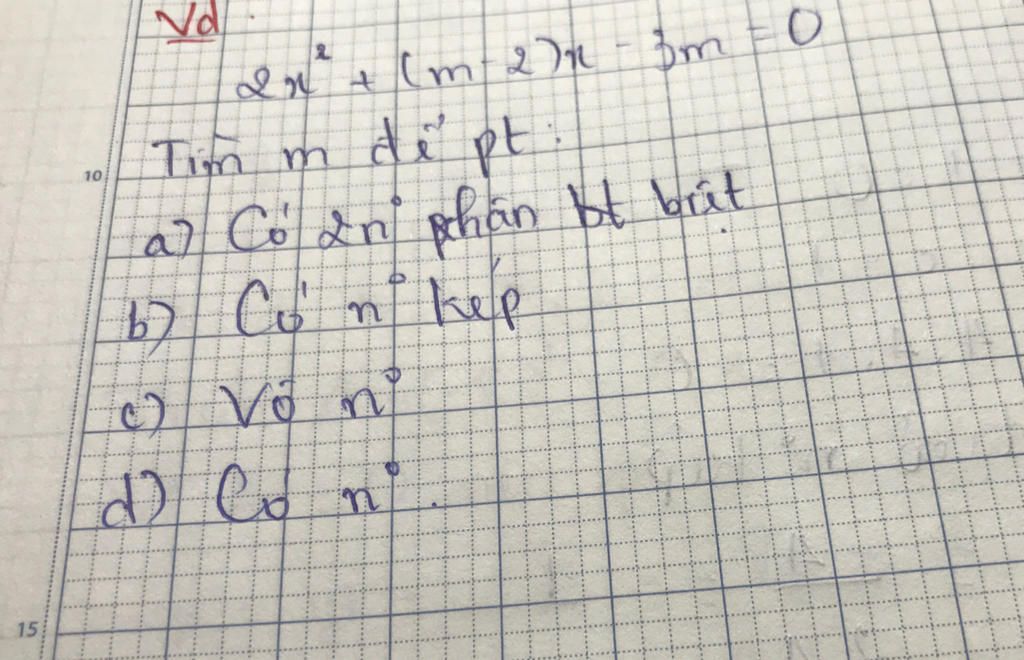 Vd.
2x² + (m - 2)x - 3m = 0
10 Tìm m để pt:
a) Có 2n° phân bt biệt
b) Có n° kép
c) Vô n°
d) Có n°.
15